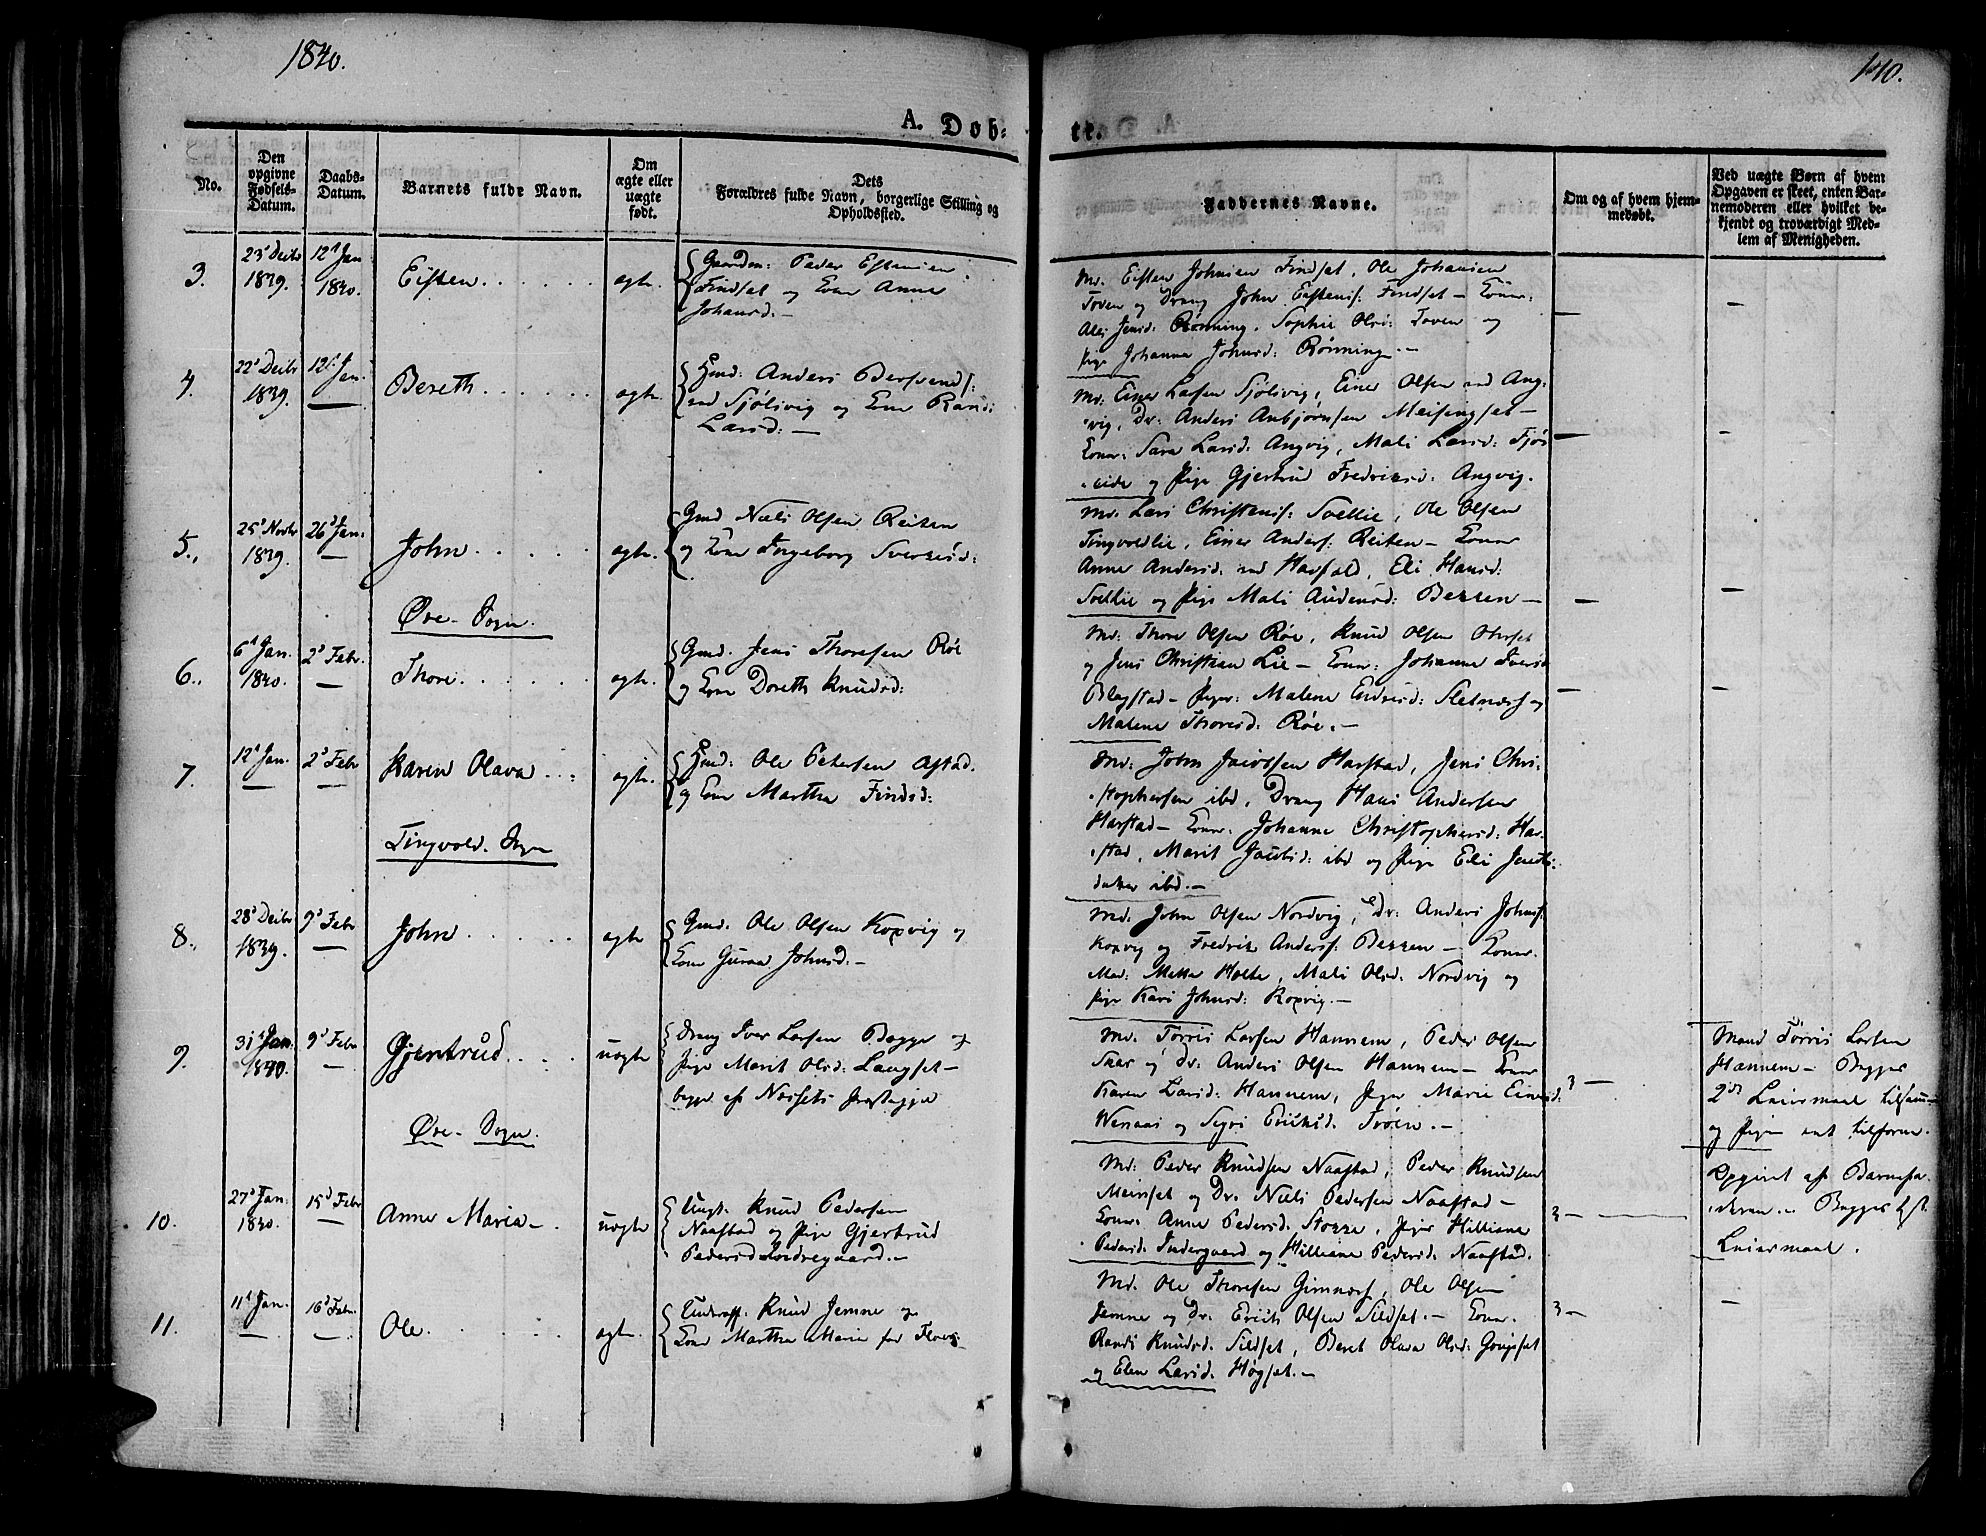 1840.
110.
A. Døb-
te.
No.
Den opgivne Fødsels-Datum.
Daabs-Datum.
Barnets fulde Navn.
Om ægte eller uægte født.
Dets Forældres fulde Navn, borgerlige Stilling og Opholdssted.
Faddernes Navne.
Om og af hvem hjemmedøbt.
Ved uægte Børn af hvem Opgaven er skeet, enten Barnemoderen eller hvilket bekjendt og troværdigt Medlem af Menigheden.
3.
23d Decbr 1839.
12t Jan: 1840.
Eisten
ægte.
Gaardm: Peder Estensen
Findset og Kone Anne
Johansd.-
Md. Eisten Johnsen Findset, Ole Johansen
Toven og Dreng John Eistens: Findset - Koner:
Jensd: Rønning, Sophie Olsd: Toven og
Pige Johanna Johnsd: Rønning.-
4.
22d Decbr 1839.
12t Jan. -
Bereth
ægte.
Hmd: Anders Bersvends:
ved Sjølsvig og Kone Randi
Larsd: -
Md: Einer Larsen Sjølsvig, Einer Olsen ved Ang-
vig, Dr: Anders Anbjørnsen Meisingset -
Koner: Sara Larsd: Angvig, Mali Larsd: Tjøs-
eide og Pige Gjertrud Fredriksd: Angvig.
5.,
25d Novbr 1839.
26d Jan: -
John
ægte.
Gmd Niels Olsen Reiten
og Kone Ingeborg Sverksd:
Md: Lars Christens: Svellie, Ole Olsen
Tingvoldlie, Einer Anders: Reiten - Koner
Anne Andersd. ved Havfald, Eli Hansd:
Svellie og Pige Mali Audensd: Bekken -
Øre-Sogn.
6.,
6t Jan. 1840.
2d Febr. -
Thore
ægte.
Gmd. Jens Thoresen Røe
og Kone Doreth Knudsd:
Md: Thore Olsen Røe, Knud Olsen
og Jens Christian Lie - Koner: Johanna Iversd
Blegstad - Piger: Malene Endresd: Sletnæss og
Malene Thoresd: Røe.-
7.
12t Jan. -
2d Febr -
Karen Olava
ægte.
Hmd: Ole Petersen Astad.
og Kone Martha Findsd:
Md: John Jacobsen Harstad, Jens Chri-
stophersen ibd, Dreng Hans Andersen
Harstad - Koner: Johanne Christophersd: Har-
stad, Marit Jacobsd: ibd og Pige Eli
ibd.-
Tingvold. Sogn
8.,
28d Decbr 1839.
9d Febr -
John
ægte
Gmd. Ole Olsen Koxvig og
Kone Guraa Johnsd.-
Md. John Olsen Nordvig, Dr: Anders Johns:
Koxvig og Fredrik Anders: Bekken - Koner.
Mad: Metta Holte, Mali Olsd. Nordvig og
Pige Kari Johnsd: Koxvig.-
9.
31d Jan. 1840.
9d Febr -
Gjertrud
uægte
Dreng Iver Larsen Bogge og
Pige Marit Olsd: Langset -
begge af Nessets Præstegjeld
Md. Torris Larsen Hannem, Peder Olsen
Skar og Dr. Anders Olsen Hannem - Koner
Karen Larsd: Hannem, Piger Marie Einersd:
Wenaas og Sigri Eriksd: Trøen.-
3 -
Mand Torris Larsen
Hannem - Begges
2det Leiermaal tilsam-
og Pigen ant tilforn.
Øre-Sogn.
10.
27d Jan: 1840.
15d Febr -
Anne Maria -
uægte
Ungk. Knud Pedersen
Naastad og Pige Gjertrud
Pedersd Indregaard.-
Md: Peder Knudsen Naastad, Peder Knudsen
Meisset og Dr. Niels Pedersen Naastad -
Koner. Anne Pedersd: Storre, Piger Hilliane
Pedersd. Indergaard og Hilliane Pedersd: Naastad.
3 -
Opgivet af Barnefa-
deren.- Begges 1st
Leiermaal.
11.
11t Jan. -
16d Febr. -
Ole
ægte.
Underoff. Knud Jemne og
Kone Martha Marie
Md. Ole Thoresen Gimnæs, Ole Olsen
Jemne og Dr. Erich Olsen Sildset.- Koner.
Randi Knudsd. Sildset, Beret Olava Olsd: Gougset
og Elen Larsd. Høgset.-
3 -